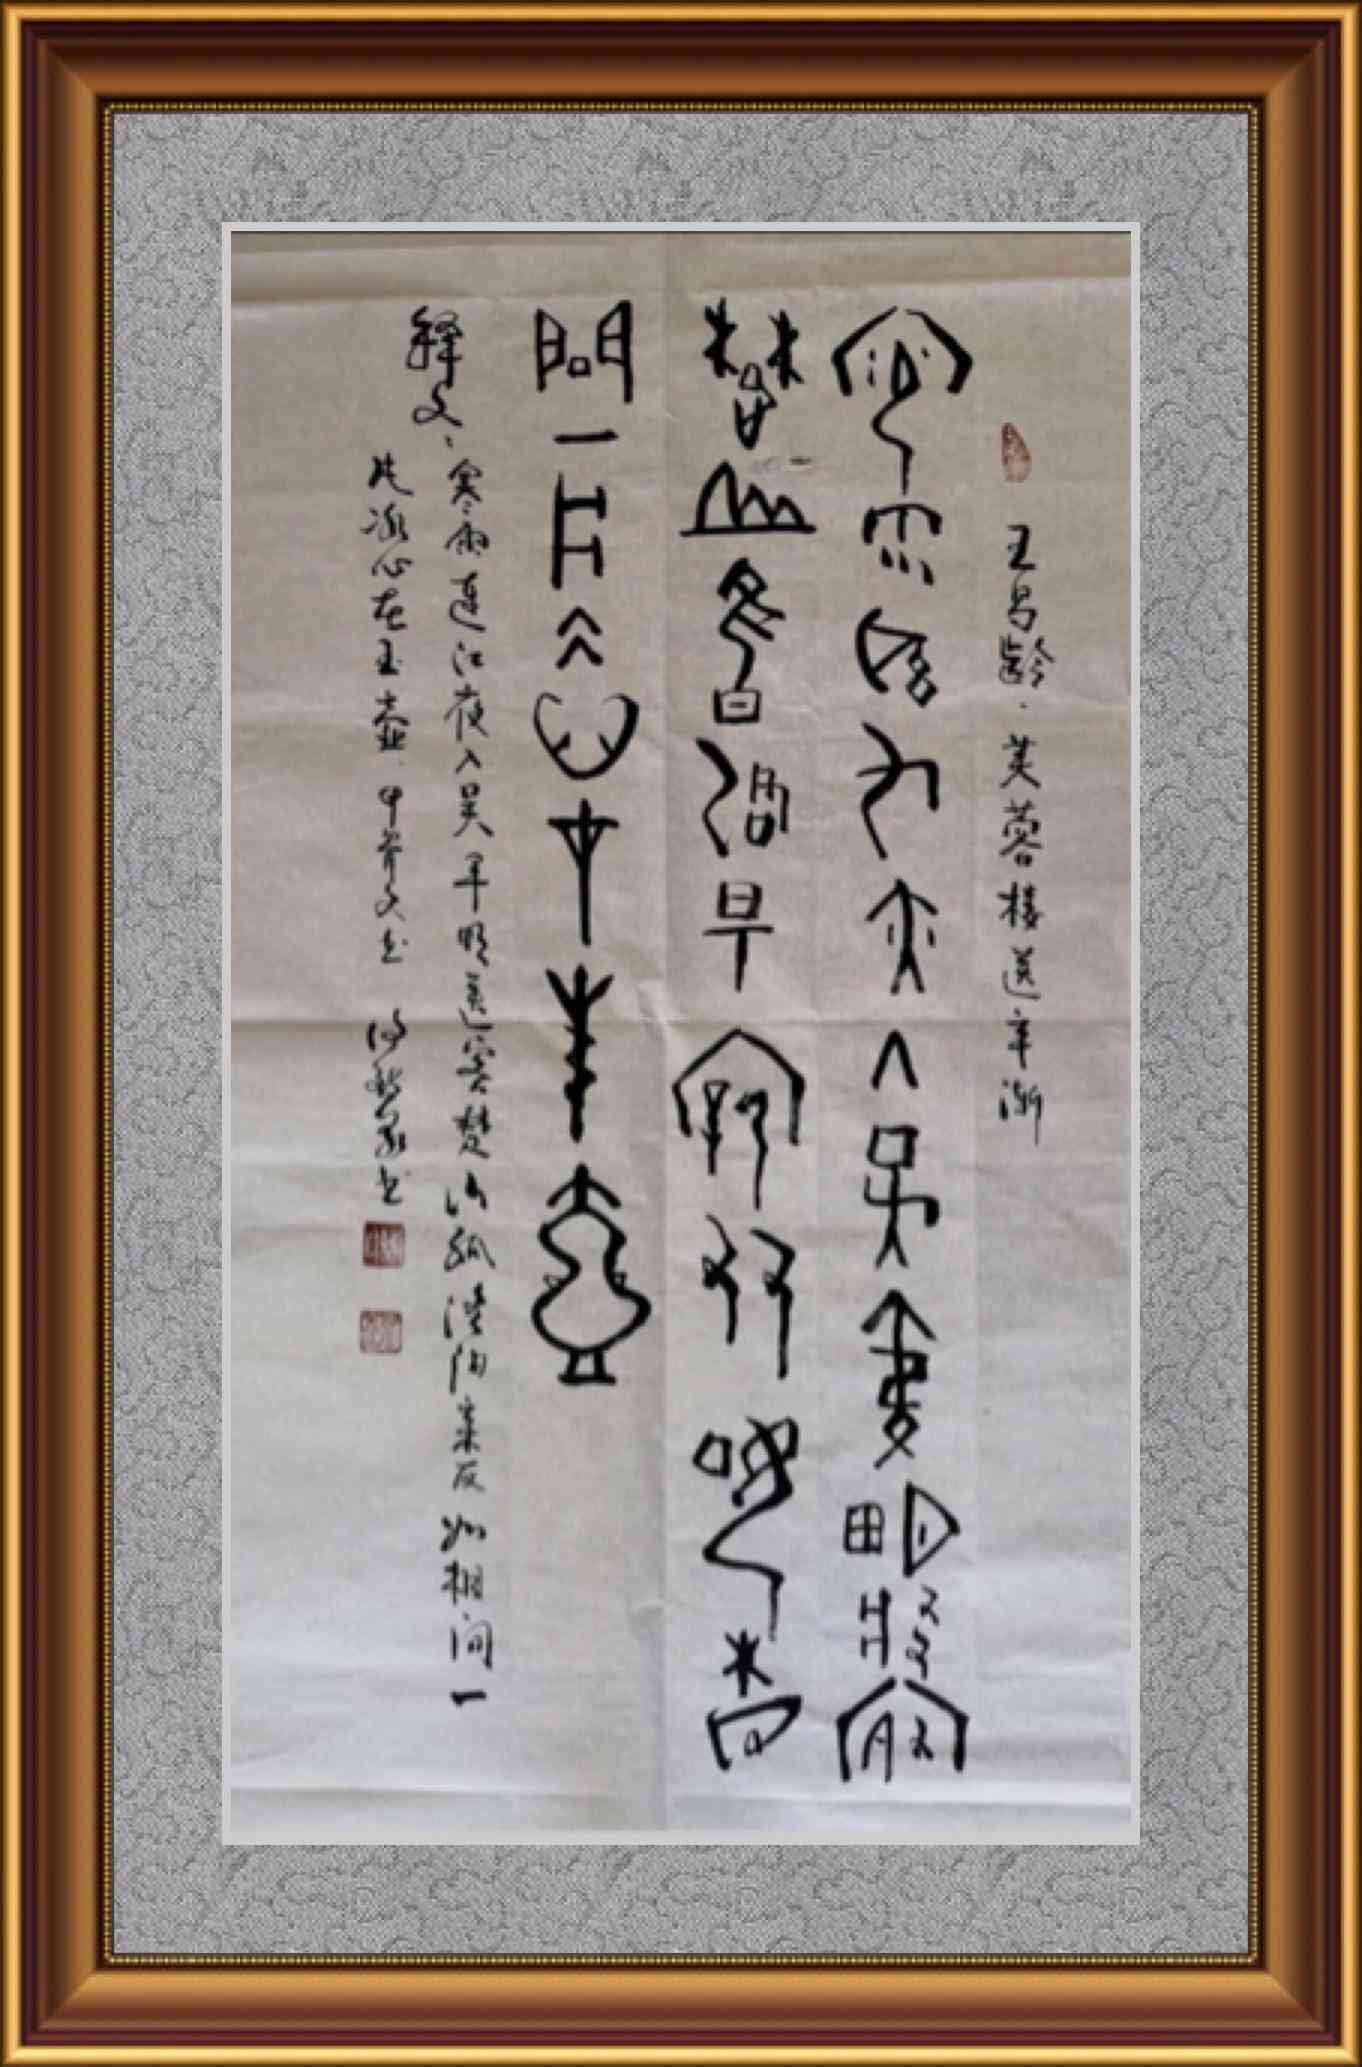 王昌龄·芙蓉楼送辛渐
寒雨连江夜入吴平明送客
楚山孤洛阳亲友如相
问一片冰心在玉壶
释文、寒雨连江夜入吴平明送客楚山孤洛阳亲友如相问一
片冰心在玉壶.甲骨文书 书